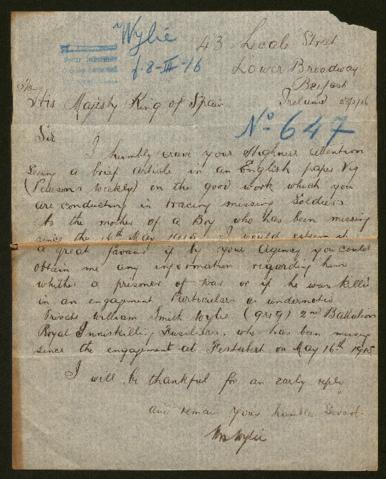 Wylie
8-III-16
43 Locale Street
Lower Broadway
Belfast
Ireland
His Majesty King of Spain
Nº 647
Sir
I humbly crave your Highness attention
Seeing a brief article in an English paper Viz
(Pearsons Weekly) on the good work which you
are conducting in tracing missing Soldiers
As the mother of a Boy who has been missing
since the 16th May 1915 I would esteem it
a great favour if by your Agency you could
obtain me any information regarding him
whether a prisoner of war or if he was killed
in an engagement Particulars as undernoted
Private William Smith Wylie 2nd Battalion
Royal Inniskilling Fusiliers, who has been missing
since the engagement at Festubert on May 16th 1915
I will be thankful for an early reply
and remain your humble Servant
Mrs Wylie